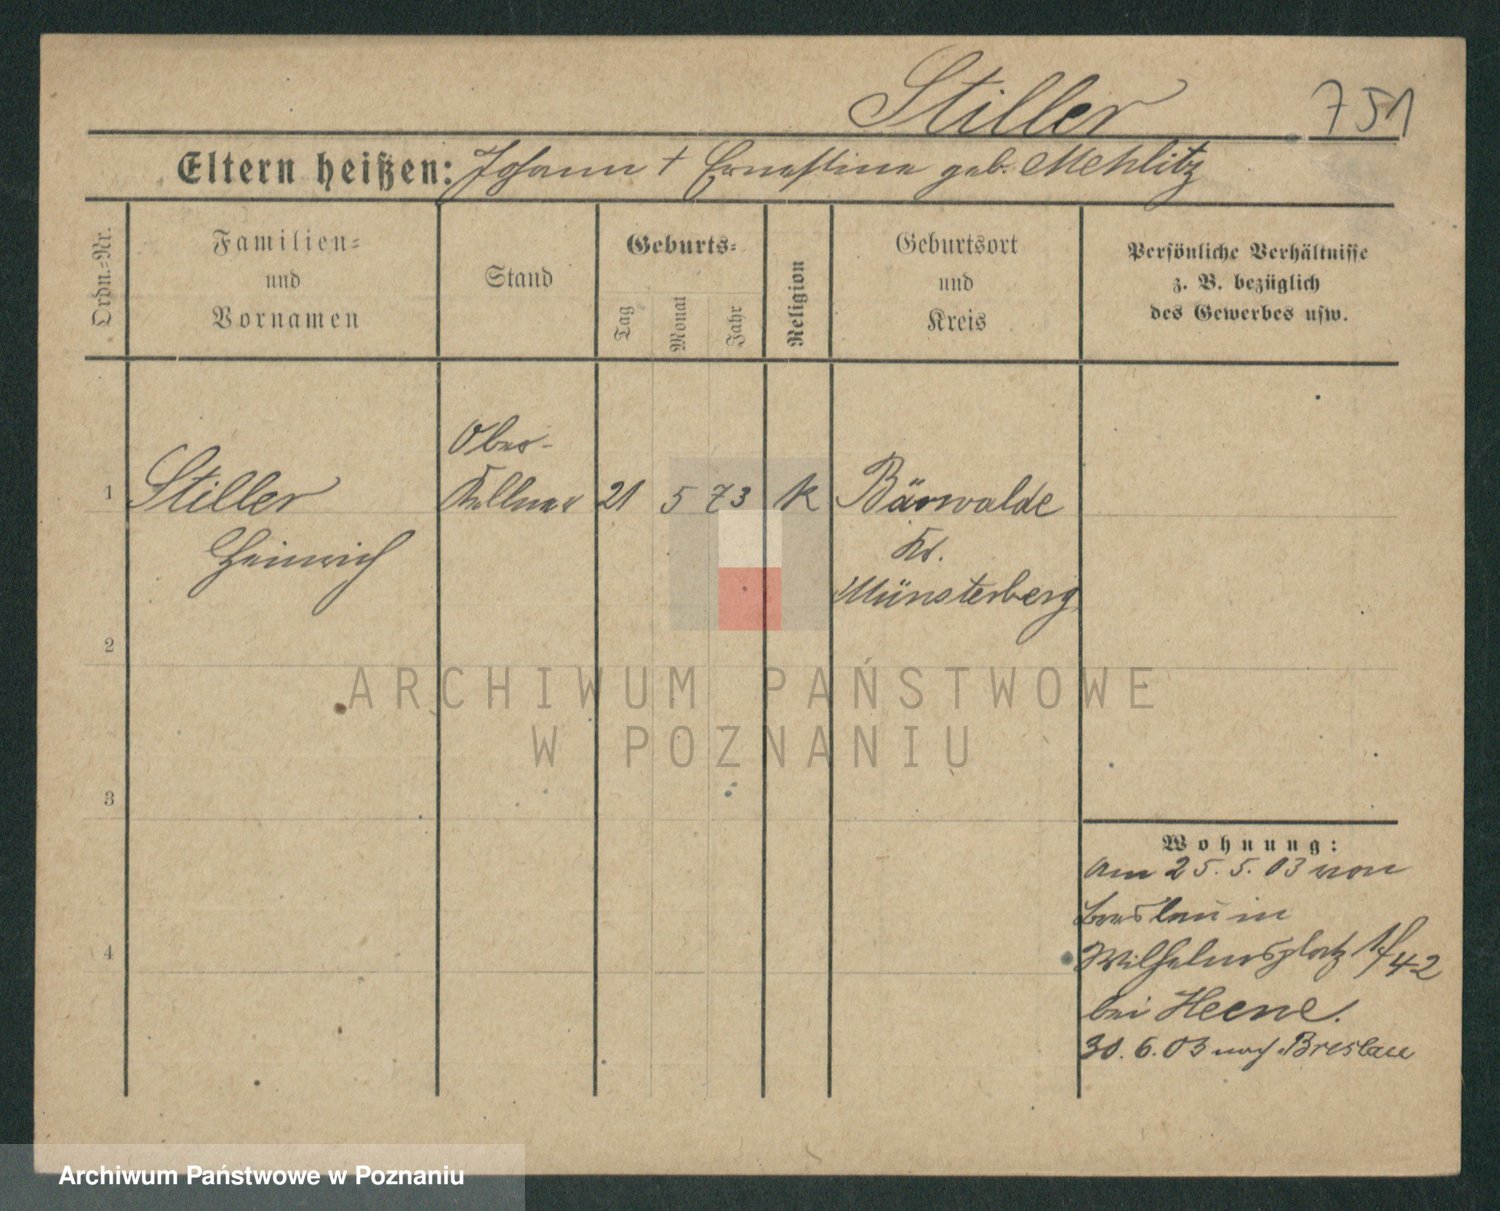 Stiller
751
Eltern heißen: Johann + Ernestine geb. Mehlitz
Ordn.-Nr.
Familien-
und
Vornamen
Stand
Geburts-
Tag
Monat
Jahr
Religion
Geburtsort
und
Kreis
Persönliche Verhältnisse
z. B. bezüglich
des Gewerbes usw.
1
Stiller
Heinrich
Ober-
Kellner
21
5
73
k
Bärwalde
Kr.
Münsterberg
2
3
4
Wohnung:
Am 25.5.03 von
Breslau in
Wilhelmsplatz 42
bei Heene.
30.6.03 nach Breslau
ARCHIWUM PAŃSTWOWE
W POZNANIU
Archiwum Państwowe w Poznaniu